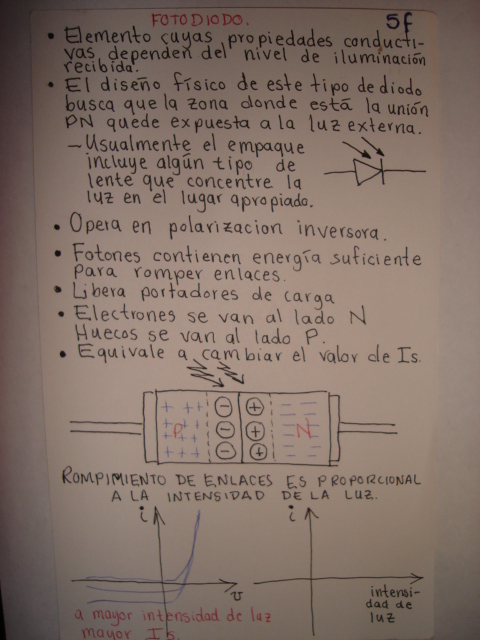 FOTODIODO.
5f
• Elemento cuyas propiedades conducti-
vas dependen del nivel de iluminación
recibida.
• El diseño físico de este tipo de diodo
busca que la zona donde está la unión
PN quede expuesta a la luz externa.
– Usualmente el empaque
incluye algún tipo de
lente que concentre la
luz en el lugar apropiado.
• Opera en polarizacion inversora.
• Fotones contienen energía suficiente
para romper enlaces.
• Libera portadores de carga
• Electrones se van al lado N
Huecos se van al lado P.
• Equivale a cambiar el valor de Is.
P N
ROMPIMIENTO DE ENLACES ES PROPORCIONAL
A LA INTENSIDAD DE LA LUZ.
i i
v
intensi-
dad de
luz
a mayor intensidad de luz
mayor Is.